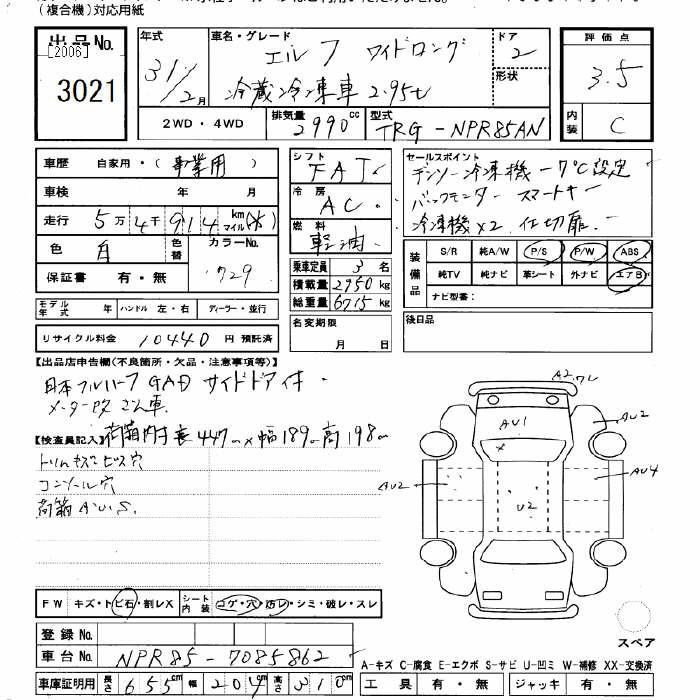 (複合機)対応用紙
出品No.
[2006]
3021
年式
31/2月
車名・グレード
エルフ ワイドロング
冷蔵冷凍車 2.95t
ドア
2
形状
評価点
3.5
内装
C
2WD・4WD
排気量 2990cc
型式 TRG-NPR85AN
車歴 自家用・(事業用)
車検 年 月
走行 5万4千914 km マイル(米)
色 白 色替 カラーNo. 729
保証書 有・無
シフト FAT
冷房 AC
燃料 軽油
乗車定員 3名
積載量 2950kg
総重量 6715kg
セールスポイント
デンソー冷凍機 -7℃設定
バックモニター スマートキー
冷凍機×2 仕切扉
装備品
S/R 純A/W P/S P/W ABS
純TV 純ナビ 革シート 外ナビ エアB
ナビ型番:
モデル年式 ハンドル 左・右 ディーラー・並行
リサイクル料金 10440 円 預託済
名変期限 月 日
後日品
【出品店申告欄(不良箇所・欠品・注意事項等)】
日本フルハーフ GAD サイドドア付
【検査員記入】荷箱内寸 長447cm×幅189cm高198cm
トリムキズビス穴
コンソール穴
荷箱A.U.S.
A2 ワレ
AU1
AU2
AU2
AU4
U2
FW キズ・トビ石・割レX
シート内装 コゲ・穴・汚レ・シミ・破レ・スレ
スペア
登録No.
車台No. NPR85-7085862
車庫証明用 長さ 655cm 幅 204cm 高さ 310cm
A-キズ C-腐食 E-エクボ S-サビ U-凹ミ W-補修 XX-交換済
工具 有・無 ジャッキ 有・無